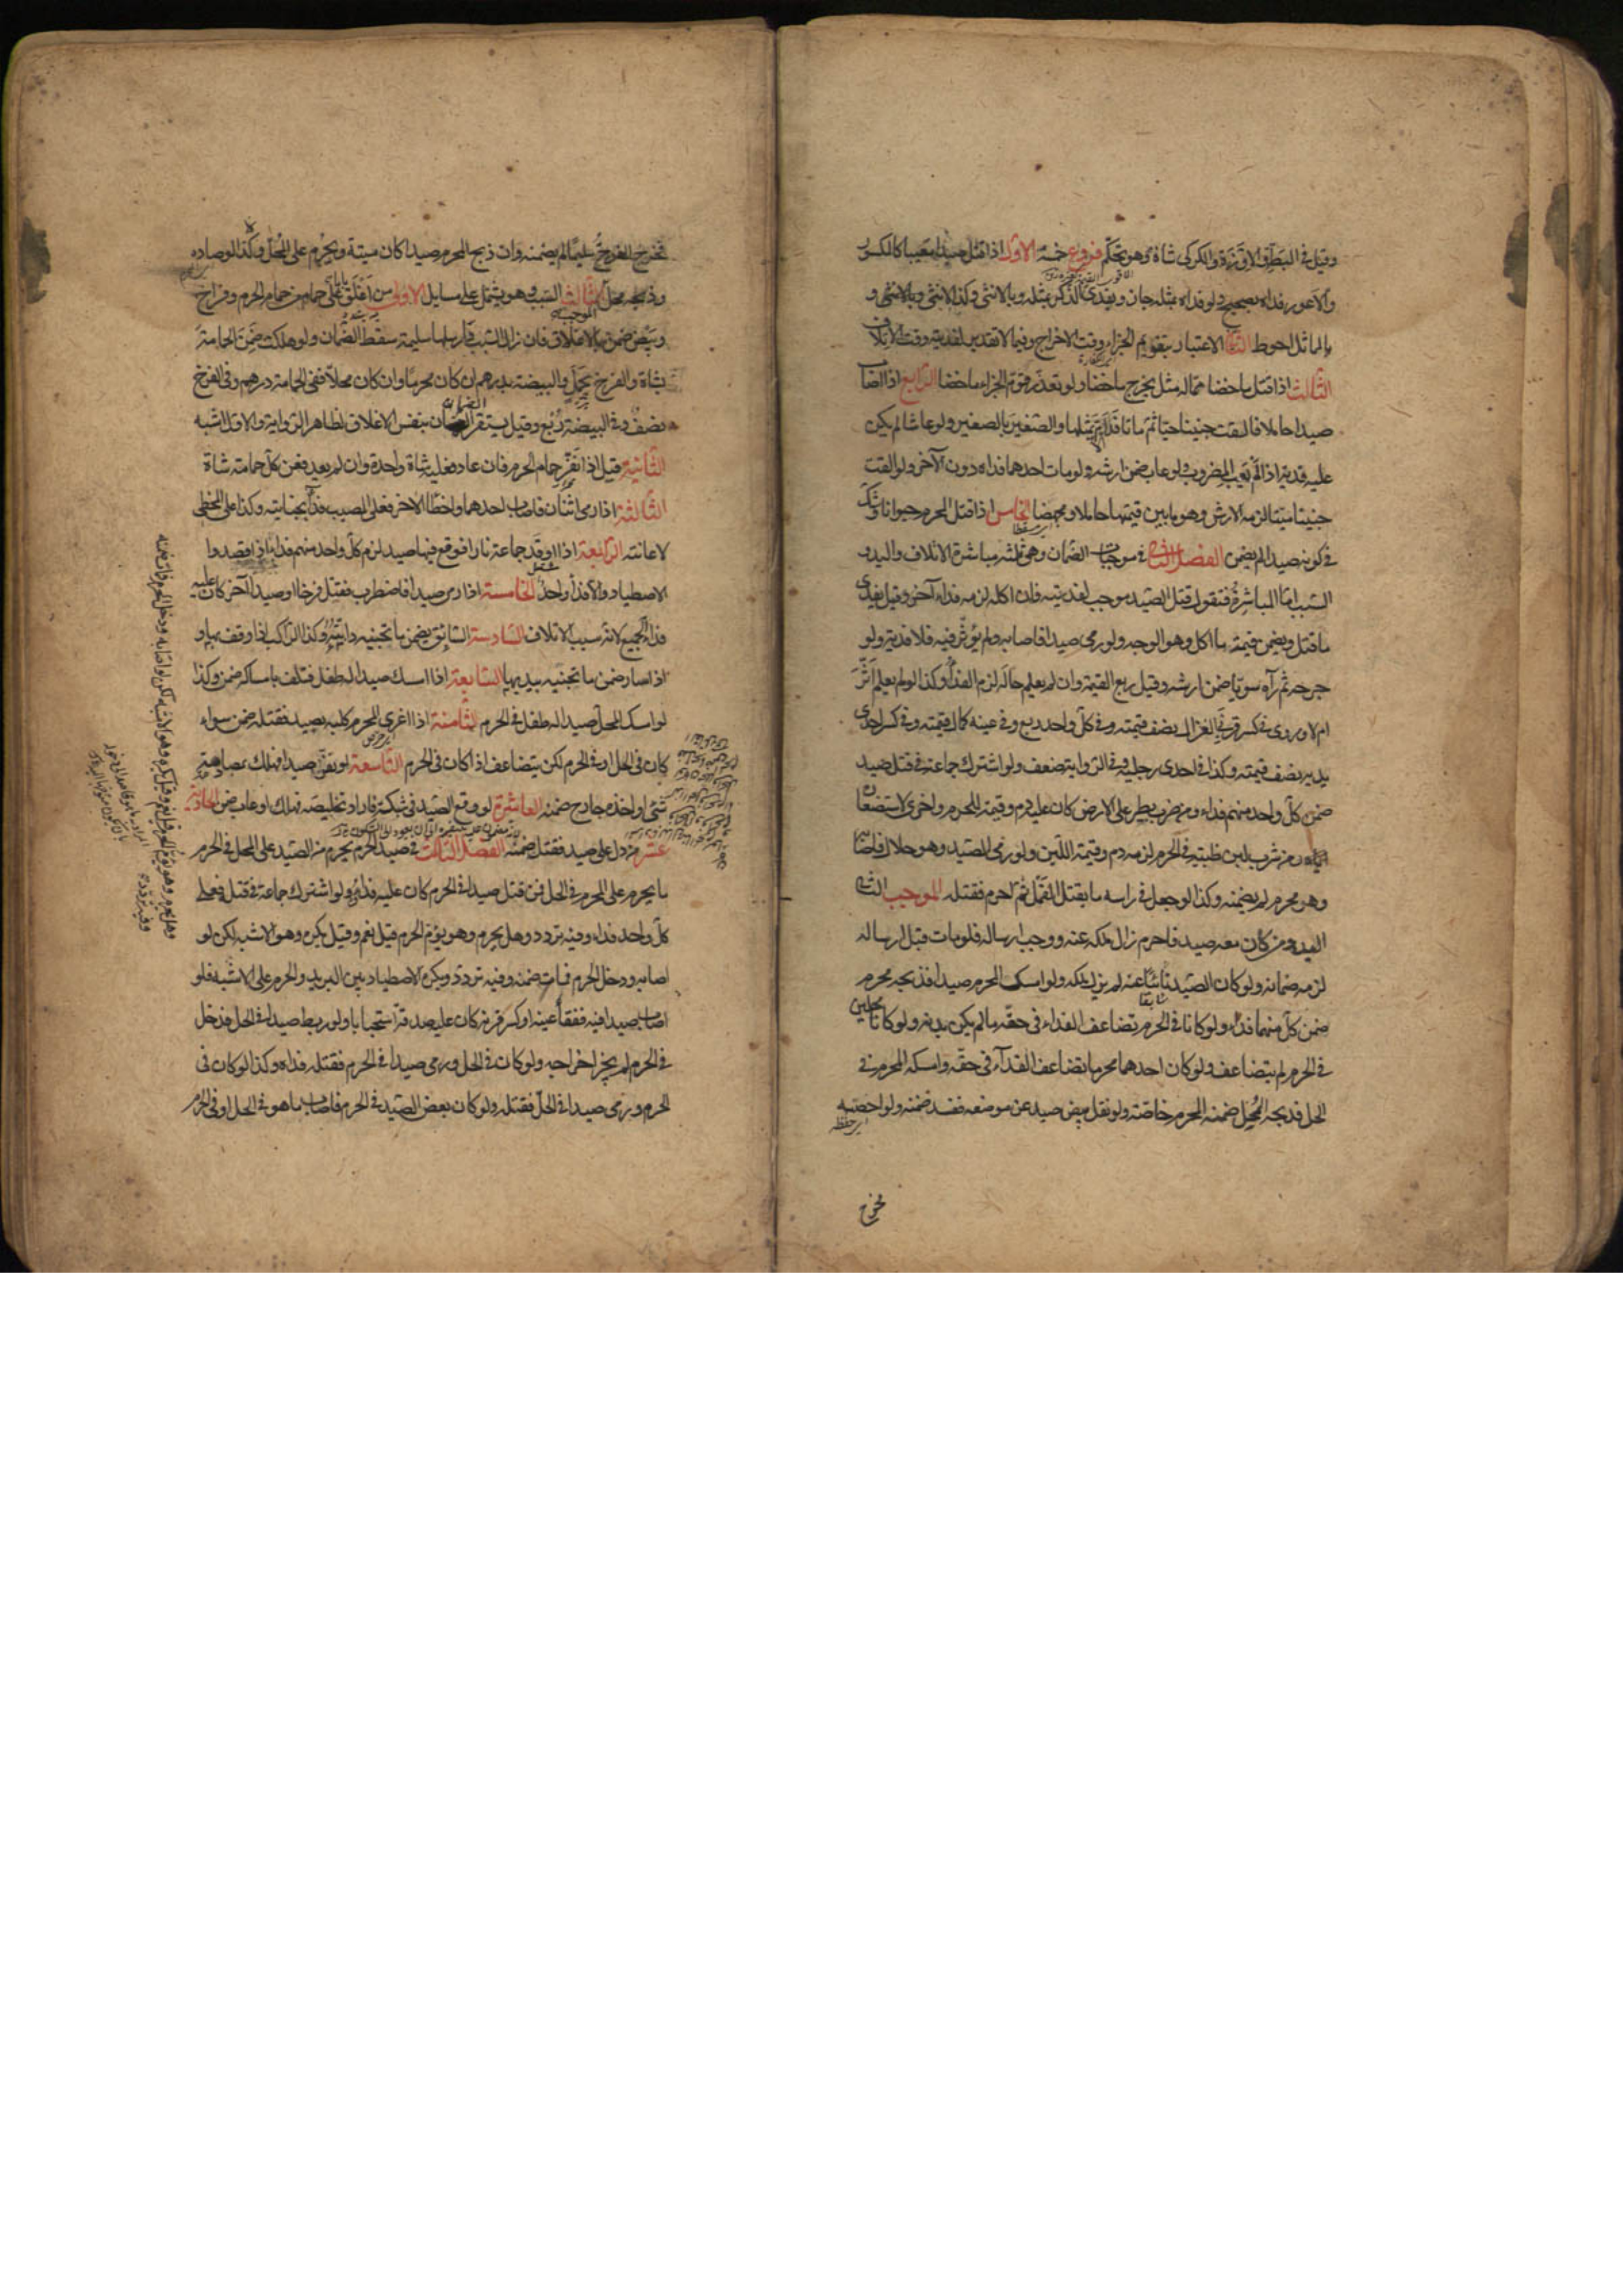 وقيل في البط والاوزة والكركي شاة وهو تحكم فروع خمسة الاول اذا قتل صيدا معيبا كالمكسور
والاعور فداه بصحيح ولو فداه بمثله جاز ويفدي الذكر بمثله وبالانثى وكذا الانثى وبالانثى و
بالمماثل احوط الثاني الاعتبار بتقويم الجزاء وقت الاخراج وفيما لا تقدير لفديته وقت الاتلاف
الثالث اذا قتل ماخضا مما له مثل يخرج ماخضا ولو تعذر قوم الجزاء ماخضا الرابع اذا اصاب
صيدا حاملا فالقت جنينا حيا ثم ماتا فدا الام بمثلها والصغير بالصغير ولو عاشا لم يكن
عليه فدية اذا لم يعب المضروب ولو عاب ضمن ارشه ولو مات احدهما فداه دون الآخر ولو القت
جنينا ميتا لزمه الارش وهو ما بين قيمتها حاملا ومجهضا الخامس اذا قتل المحرم حيوانا وشك
في كونه صيدا لم يضمن الفصل الثاني في موجبات الضمان وهي ثلثه مباشرة الاتلاف واليد و
السبب اما المباشرة فنقول قتل الصيد موجب لفديته فان اكله لزمه فداء آخر وقيل يفدي
ما قتل ويضمن قيمة ما اكل وهو الوجه ولو رمى صيدا فاصابه ولم يؤثر فيه فلا فدية ولو
جرحه ثم رآه سويا ضمن ارشه وقيل ربع القيمة وان لم يعلم حاله لزم الفداء وكذا لو لم يعلم اثر
ام لا وروي في كسر قرني الغزال نصف قيمته وفي كل واحد ربع وفي عينه كمال قيمته وفي كسر احدى
يديه نصف قيمته وكذا في احدى رجليه وفي الرواية ضعف ولو اشترك جماعة في قتل صيد
ضمن كل واحد منهم فداء ومن ضرب بطير على الارض كان عليه دم وقيمة للحرم واخرى لاستصغاره
اياه ومن شرب لبن ظبية في الحرم لزمه دم وقيمة اللبن ولو رمى الصيد وهو حلال فاصابه
وهو محرم لم يضمنه وكذا لو جعل في راسه ما يقتل القمل ثم احرم فقتله الموجب الثاني
اليد ومن كان معه صيد فاحرم زال ملكه عنه ووجب ارساله فلو مات قبل ارساله
لزمه ضمانه ولو كان الصيد نائيا عنه لم يزل ملكه ولو امسك المحرم صيدا فذبحه محرم
ضمن كل منهما فداء ولو كانا في الحرم تضاعف الفداء في حقه ما لم يكن بدنة ولو كانا محلين
في الحرم لم يتضاعف ولو كان احدهما محرما تضاعف الفداء في حقه وامسكه المحرم في
الحل فذبحه المحل ضمنه المحرم خاصة ولو نقل بيض صيد عن موضعه ففسد ضمنه ولو احضنه
فخرج
فخرج الفرخ سليما لم يضمنه وان ذبح المحرم صيدا كان ميتة ويحرم على المحل وكذا لو صاده
وذبحه محل الثالث السبب وهو يشتمل على مسايل الاولى من اغلق على حمام من حمام الحرم وفراخ
وبيض ضمن بالاغلاق فان زال السبب وارسلها سليمة سقط الضمان ولو هلكت ضمن الحمامة
بشاة والفرخ بحمل والبيضة بدرهم ان كان محرما وان كان محلا ففي الحمامة درهم وفي الفرخ
نصف وفي البيضة ربع وقيل يستقر الضمان بنفس الاغلاق لظاهر الرواية والاول اشبه
الثانية قيل اذا نفر حمام الحرم فان عاد فعليه شاة واحدة وان لم يعد فعن كل حمامة شاة
الثالثة اذا رمى اثنان فاصاب احدهما واخطا الاخر فعلى المصيب فداء بجنايته وكذا على المخطي
لاعانته الرابعة اذا اوقد جماعة نارا فوقع فيها صيد لزم كل واحد منهم فداء اذا قصدوا
الاصطياد والا ففداء واحد الخامسة اذا رمى صيدا فاضطرب فقتل فرخا او صيدا آخر كان عليه
فداء الجميع لانه سبب الاتلاف السادسة السائق يضمن ما تجنيه دابته وكذا الراكب اذا وقف بها و
اذا سار ضمن ما تجنيه بيديها السابعة اذا امسك صيدا له طفل فتلف بامساكه ضمن وكذا
لو امسك المحل صيدا له طفل في الحرم الثامنة اذا اغرى المحرم كلبه بصيد فقتله ضمن سواء
كان في الحل او في الحرم لكن يتضاعف اذا كان في الحرم التاسعة لو نفر صيدا فهلك بمصادمة
شئ او اخذه جارح ضمنه العاشرة لو وقع الصيد في شبكة فاراد تخليصه فهلك او عاب ضمن الحادية
عشر من دل على صيد فقتل ضمنه الفصل الثالث في صيد الحرم يحرم من الصيد على المحل في الحرم
ما يحرم على المحرم في الحل فمن قتل صيدا في الحرم كان عليه فداؤه ولو اشترك جماعة في قتله فعلى
كل واحد فداء وفيه تردد وهل يحرم وهو يؤم الحرم قيل نعم وقيل يكره وهو الاشبه لكن لو
اصابه ودخل الحرم فمات ضمنه وفيه تردد ويكره الاصطياد بين البريد والحرم على الاشبه فلو
اصاب صيدا فيه ففقأ عينه او كسر قرنه كان عليه صدقة استحبابا ولو ربط صيدا في الحل فدخل
في الحرم لم يجز اخراجه ولو كان في الحل ورمى صيدا في الحرم فقتله فداه وكذا لو كان في
الحرم ورمى صيدا في الحل فقتله ولو كان بعض الصيد في الحرم فاصاب ما هو في الحل او في الحرم